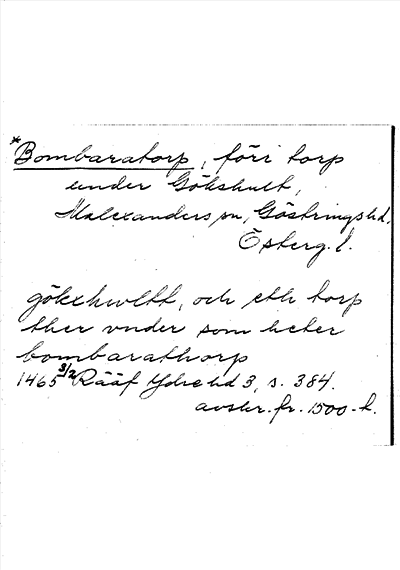 *Bombaratorp, förr torp
under Gökshult,
Malexanders sn, Göstrings hd,
Österg. l.
gökxhwltt, och eth torp
ther vnder som heter
bombarathorp
1465 3/2 Rääf Ydre hd 3, s. 384.
avskr. fr. 1500-t.